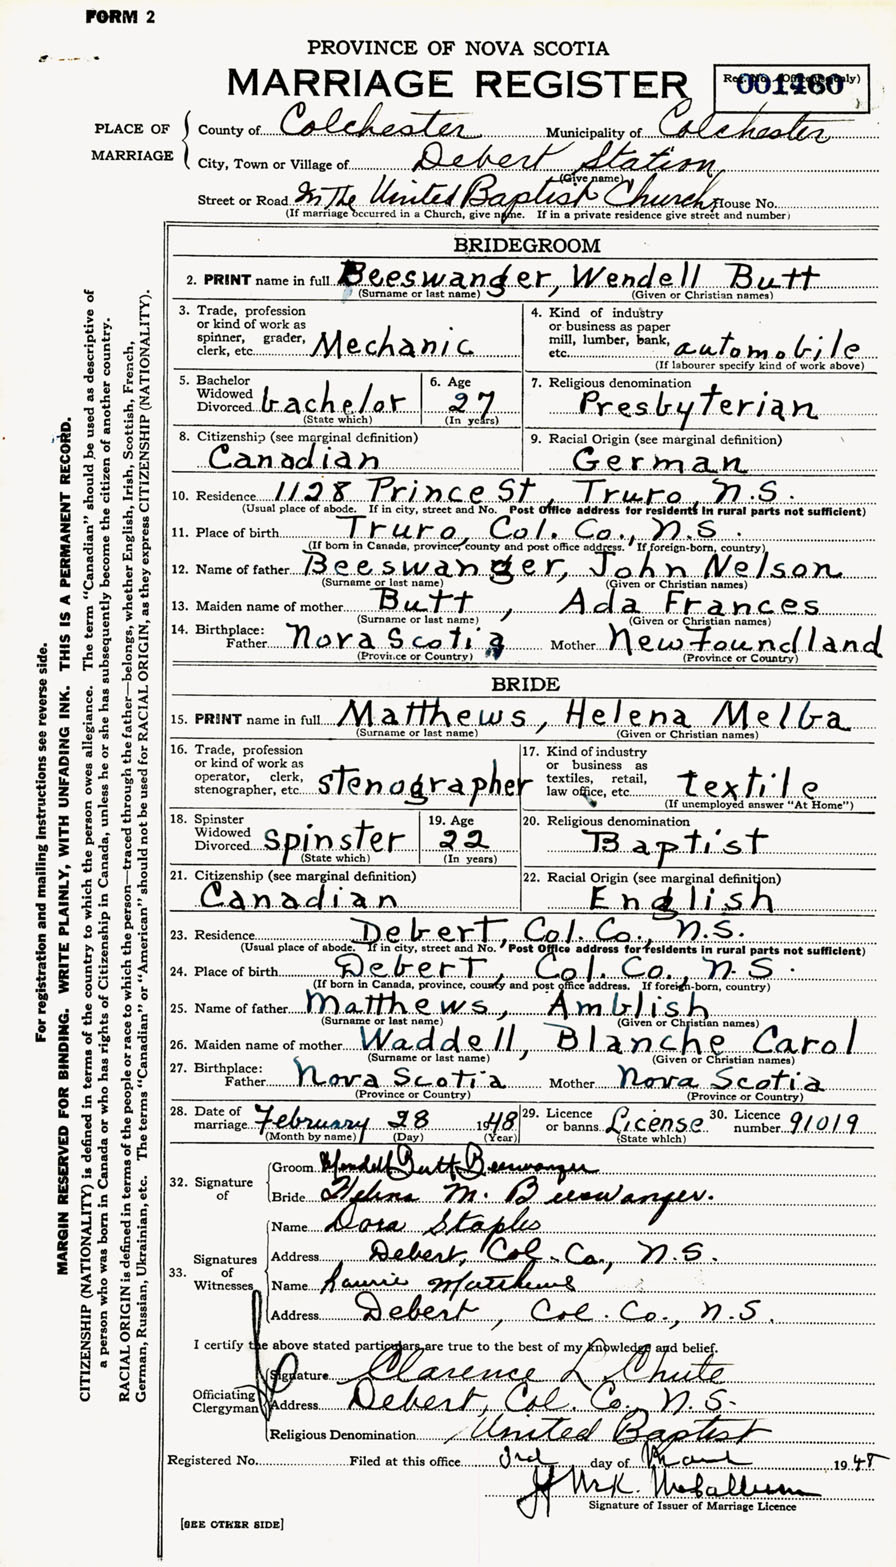 FORM 2
PROVINCE OF NOVA SCOTIA
MARRIAGE REGISTER
Reg. No. (Office use only)
001460
PLACE OF MARRIAGE
County of Colchester Municipality of Colchester
City, Town or Village of Debert Station
(Give name)
Street or Road In The United Baptist Church House No.
(If marriage occurred in a Church, give name. If in a private residence give street and number)
BRIDEGROOM
2. PRINT name in full Beeswanger, Wendell Butt
(Surname or last name) (Given or Christian names)
3. Trade, profession
or kind of work as
spinner, grader,
clerk, etc. Mechanic
4. Kind of industry
or business as paper
mill, lumber, bank,
etc. automobile
(If labourer specify kind of work above)
5. Bachelor
Widowed
Divorced bachelor
(State which)
6. Age
27
(In years)
7. Religious denomination
Presbyterian
8. Citizenship (see marginal definition)
Canadian
9. Racial Origin (see marginal definition)
German
10. Residence 1128 Prince St, Truro, N.S.
(Usual place of abode. If in city, street and No. Post Office address for residents in rural parts not sufficient)
11. Place of birth Truro, Col. Co., N.S.
(If born in Canada, province, county and post office address. If foreign-born, country)
12. Name of father Beeswanger, John Nelson
(Surname or last name) (Given or Christian names)
13. Maiden name of mother Butt, Ada Frances
(Surname or last name) (Given or Christian names)
14. Birthplace:
Father Nova Scotia Mother Newfoundland
(Province or Country) (Province or Country)
BRIDE
15. PRINT name in full Matthews, Helena Melba
(Surname or last name) (Given or Christian names)
16. Trade, profession
or kind of work as
operator, clerk,
stenographer, etc. stenographer
17. Kind of industry
or business as
textiles, retail,
law office, etc. textile
(If unemployed answer "At Home")
18. Spinster
Widowed
Divorced Spinster
(State which)
19. Age
22
(In years)
20. Religious denomination
Baptist
21. Citizenship (see marginal definition)
Canadian
22. Racial Origin (see marginal definition)
English
23. Residence Debert, Col. Co., N.S.
(Usual place of abode. If in city, street and No. Post Office address for residents in rural parts not sufficient)
24. Place of birth Debert, Col. Co., N.S.
(If born in Canada, province, county and post office address. If foreign-born, country)
25. Name of father Matthews, Amblish
(Surname or last name) (Given or Christian names)
26. Maiden name of mother Waddell, Blanche Carol
(Surname or last name) (Given or Christian names)
27. Birthplace:
Father Nova Scotia Mother Nova Scotia
(Province or Country) (Province or Country)
28. Date of
marriage February 28 1948
(Month by name) (Day) (Year)
29. Licence
or banns License
(State which)
30. Licence
number 91019
32. Signature of
Groom Wendell Butt Beeswanger
Bride Helena M. Beeswanger.
33. Signatures of Witnesses
Name Dora Staples
Address Debert, Col. Co., N.S.
Name Laurie Matthews
Address Debert, Col. Co., N.S.
I certify the above stated particulars are true to the best of my knowledge and belief.
Officiating Clergyman
Signature Clarence L Chute
Address Debert, Col. Co. N.S.
Religious Denomination United Baptist
Registered No. Filed at this office 3rd day of March 1948
McCallum
Signature of Issuer of Marriage Licence
[SEE OTHER SIDE]
For registration and mailing instructions see reverse side.
MARGIN RESERVED FOR BINDING. WRITE PLAINLY, WITH UNFADING INK. THIS IS A PERMANENT RECORD.
CITIZENSHIP (NATIONALITY) is defined in terms of the country to which the person owes allegiance. The term "Canadian" should be used as descriptive of
a person who was born in Canada or who has rights of Citizenship in Canada, unless he or she has subsequently become the citizen of another country.
RACIAL ORIGIN is defined in terms of the people or race to which the person—traced through the father—belongs, whether English, Irish, Scottish, French,
German, Russian, Ukrainian, etc. The terms "Canadian" or "American" should not be used for RACIAL ORIGIN, as they express CITIZENSHIP (NATIONALITY).